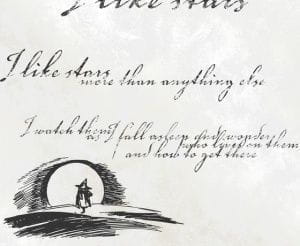 I like stars
I like stars
more than anything else
I watch them as I fall asleep and wonder
who lives on them
and how to get there